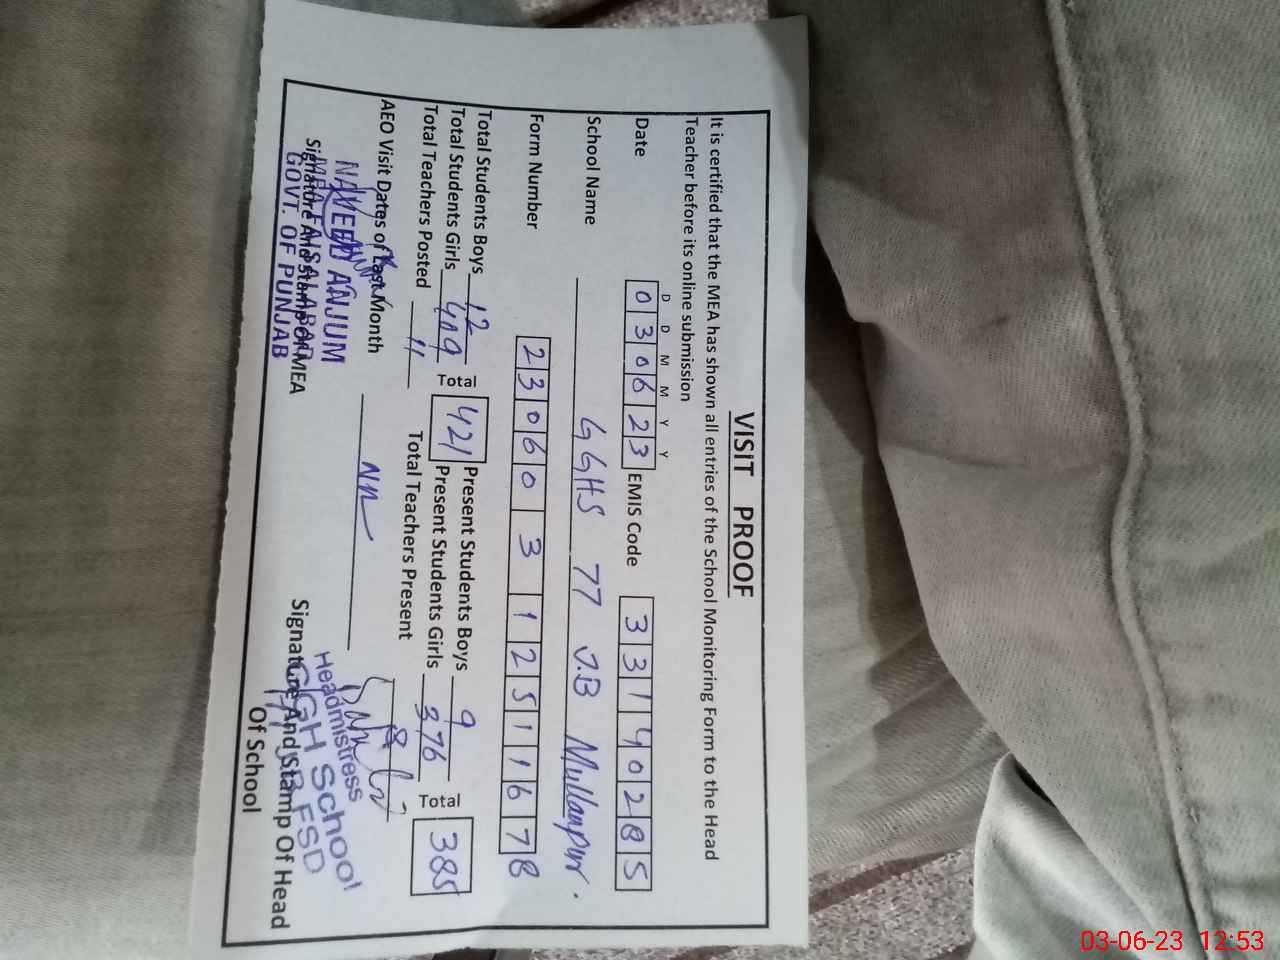 VISIT PROOF
It is certified that the MEA has shown all entries of the School Monitoring Form to the Head
Teacher before its online submission
D D M M Y Y
Date 030623 EMIS Code 33140285
School Name GGHS 77 J.B Mullanpur.
Form Number 23060 3 12511678
Total Students Boys 12 Total 421 Present Students Boys 9 Total 385
Total Students Girls 409 Present Students Girls 376
Total Teachers Posted 11 Total Teachers Present 8
AEO Visit Dates of Last Month Nil
NAVEED ANJUM
MEA FAISALABAD
GOVT. OF PUNJAB
Signature And Stamp Of MEA
Headmistress
GGH School
77 J.B FSD
Signature And Stamp Of Head
Of School
03-06-23 12:53